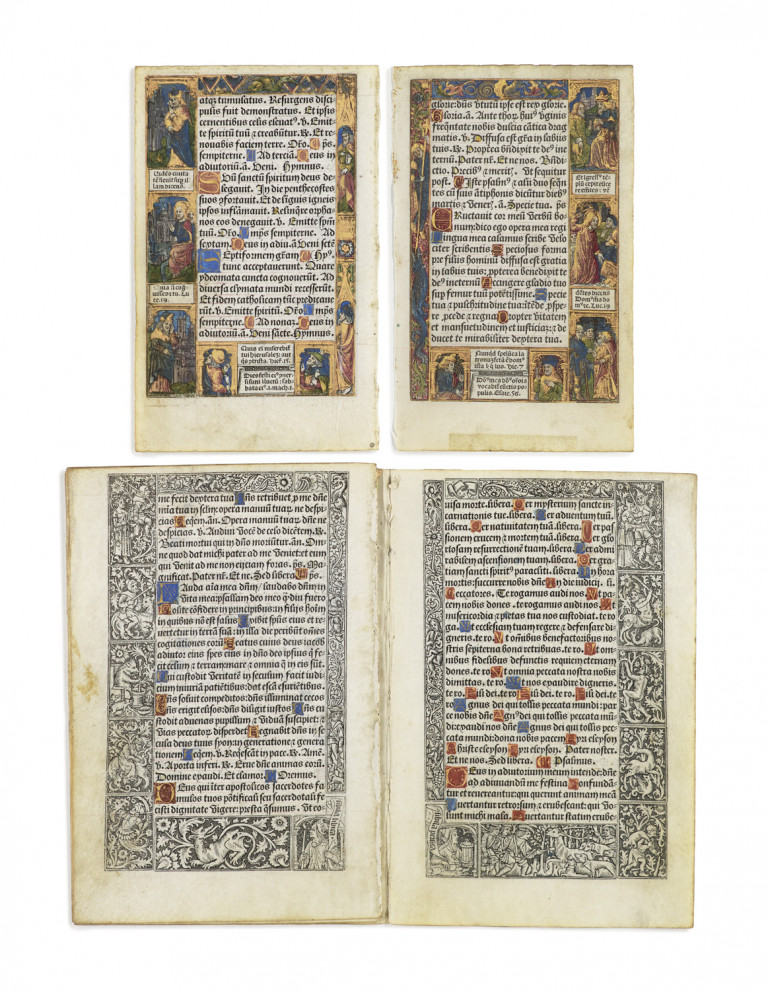 atq; tumulatus. Resurgens disci-
pulis fuit demonstratus. Et ipsis
cernentibus celis eleuat9. v. Emit-
te spiritū tuū & creabūtur. R. Et re-
nouabis faciem terre. Oro.
sempiterne. Ad terciā. Deus in
adiutoriū. ā. Veni. Hymnus.
Suū sanctū spiritum deus de-
legauit. In die penthecostes
suos 9fortauit. Et de liguis igneis
ipsos inflāmauit. Relinq̄re orpha-
nos eos denegauit. v. Emitte spm̄
tuū. Oro. sempiterne. Ad
septam. Deus in adiu. ā. Veni sctē
Septiformem gr̄am Hy9.
tunc acceptauerunt. Quare
ydeomata cuncta cognouerūt. Ad
diuersa clymata mundi recesserūt.
Et fidem catholicam tūc predicaue-
rūt. v. Emitte spiritū. Oro.
sempiterne. Ad nonaz. Deus in
adiutoriū. ā. Veni sācte. Hymnus.
glorie: dn̄s v̄tutū ipse est rex glorie.
Gloria. ā. Ante thor9 hui9 v̄ginis
freq̄ntate nobis dulcia cātica drag-
matis. v. Diffusa est gr̄a in labiis
tuis. R. Propterea bn̄dixit te de9 in e-
ternū. Pater nr̄. Et ne nos. Bn̄di-
ctio. Precib9 & merit. Vt sequitur
post. Iste psalm9 & alii duo seqn̄-
tes cū suis antiphonis dicūtur dieb9
martis & vener. ā. Specie tua. ps
Eructauit cor meū verbū bo-
num: dico ego opera mea regi
Lingua mea calamus scribe velo-
citer scribentis. Speciosus forma
pre filiis hominū diffusa est gratia
in labiis tuis: ppterea benedixit te
de9 ineternū. Accingere gladio tuo
sup femur tuū potētissime. Specie
tua & pulchritudine tua: intēde, pspe-
re, pcede & regna. Propter veritatem
et mansuetudinem et iusticiaz: & de-
ducet te mirabiliter dextera tua.
me fecit dextera tua. retribuet, p me dn̄e
mīa tua in sclm: opera manuū tuaȝ ne despi-
cias. Opera manuū tuaȝ dn̄e ne
despicias. v. Audiui vocē de celo dicētem. R.
Beati mortui qui in dn̄o moriūtur. ān. Om-
ne quod dat michi pater ad me veniet: et eum
qui venit ad me non eiiciam foras. ps. Ma-
gnificat. Pater nr̄. Et ne. Sed libera. ps.
Lauda aīa mea dn̄m: laudabo dn̄m in
vita mea: psallam deo meo q̄diu fuero
Nolite cōfidere in principibus: in filiis hoīm
in quibus nō est salus. Exibit spūs eius et re-
uertetur in terrā suā: in illa die peribūt oēs
cogitationes eorū. Beatus cuius deus iacob
adiutor eius spes eius in dn̄o deo ipsius q̄ fe-
cit celum & terram: mare & omnia q̄ in eis sūt.
Qui custodit veritatē in seculum facit iudi-
cium iniuriā patiētibus: dat escā esuriētibus.
Dn̄s soluit compeditos: dn̄s illuminat cecos
Dn̄s erigit elisos: dn̄s diligit iustos. Dn̄s cu-
stodit aduenas pupillum & viduā suscipiet: &
vias peccatorū disperdet. Regnabit dn̄s in se-
cula deus tuus syon: in generatione & genera-
tionem. v. Req̄escāt in pace. R. Amē.
v. A porta inferi. R. Erue animas eorū.
Domine exaudi. Et clamor. Oremus.
Deus qui īter apostolicos sacerdotes fa-
mulos tuos pōtificali seu sacerdotali fe-
cisti dignitate vigere: presta q̄sumus. vt eo-
uisa morte. libera. Per mysterium sancte in-
carnationis tue. libera. Per aduentum tuū.
libera. Per natiuitatem tuā. libera. Per pas-
sionem crucem & mortem tuā. libera. Per glo-
riosam resurrectionē tuam. libera. Per admi-
rabilem ascensionem tuam. libera. Per gra-
tiam sancti spirit9 paracliti. libera. In hora
mortis: succurre nobis dn̄e. In die iudicii. li.
Peccatores. Te rogamus audi nos. Vt pa-
cem nobis dones. te rogamus audi nos. Vt
misericordia & pietas tua nos custodiat. te ro-
ga. Vt ecclesiam tuam regere & defensare di-
gneris. te ro. Vt omnibus benefactoribus no-
stris sepiterna bona retribuas. te ro. Vt om-
nibus fidelibus defunctis requiem eternam
dones. te ro. Vt omnia peccata nostra nobis
dimittas. te ro. Vt nos exaudire digneris.
te ro. Fili dei. te ro. Fili dei. te ro. Fili dei. te
ro. Agnus dei qui tollis peccata mundi: par-
ce nobis dn̄e. Agn9 dei qui tollis peccata mū-
di: exaudi nos dn̄e. Agnus dei qui tollis pec-
cata mundi: dona nobis pacem. Kyrie eleyson.
Christe eleyson. Kyrie eleyson. Pater noster.
Et ne nos. Sed libera. Psalmus.
Deus in adiutorium meum intende: dn̄e
ad adiuuandū me festina. Confundā-
tur et reuereantur: qui querunt animam meā
Auertantur retrorsum & erubescant: qui vo-
lunt michi mala. Auertantur statim erube-